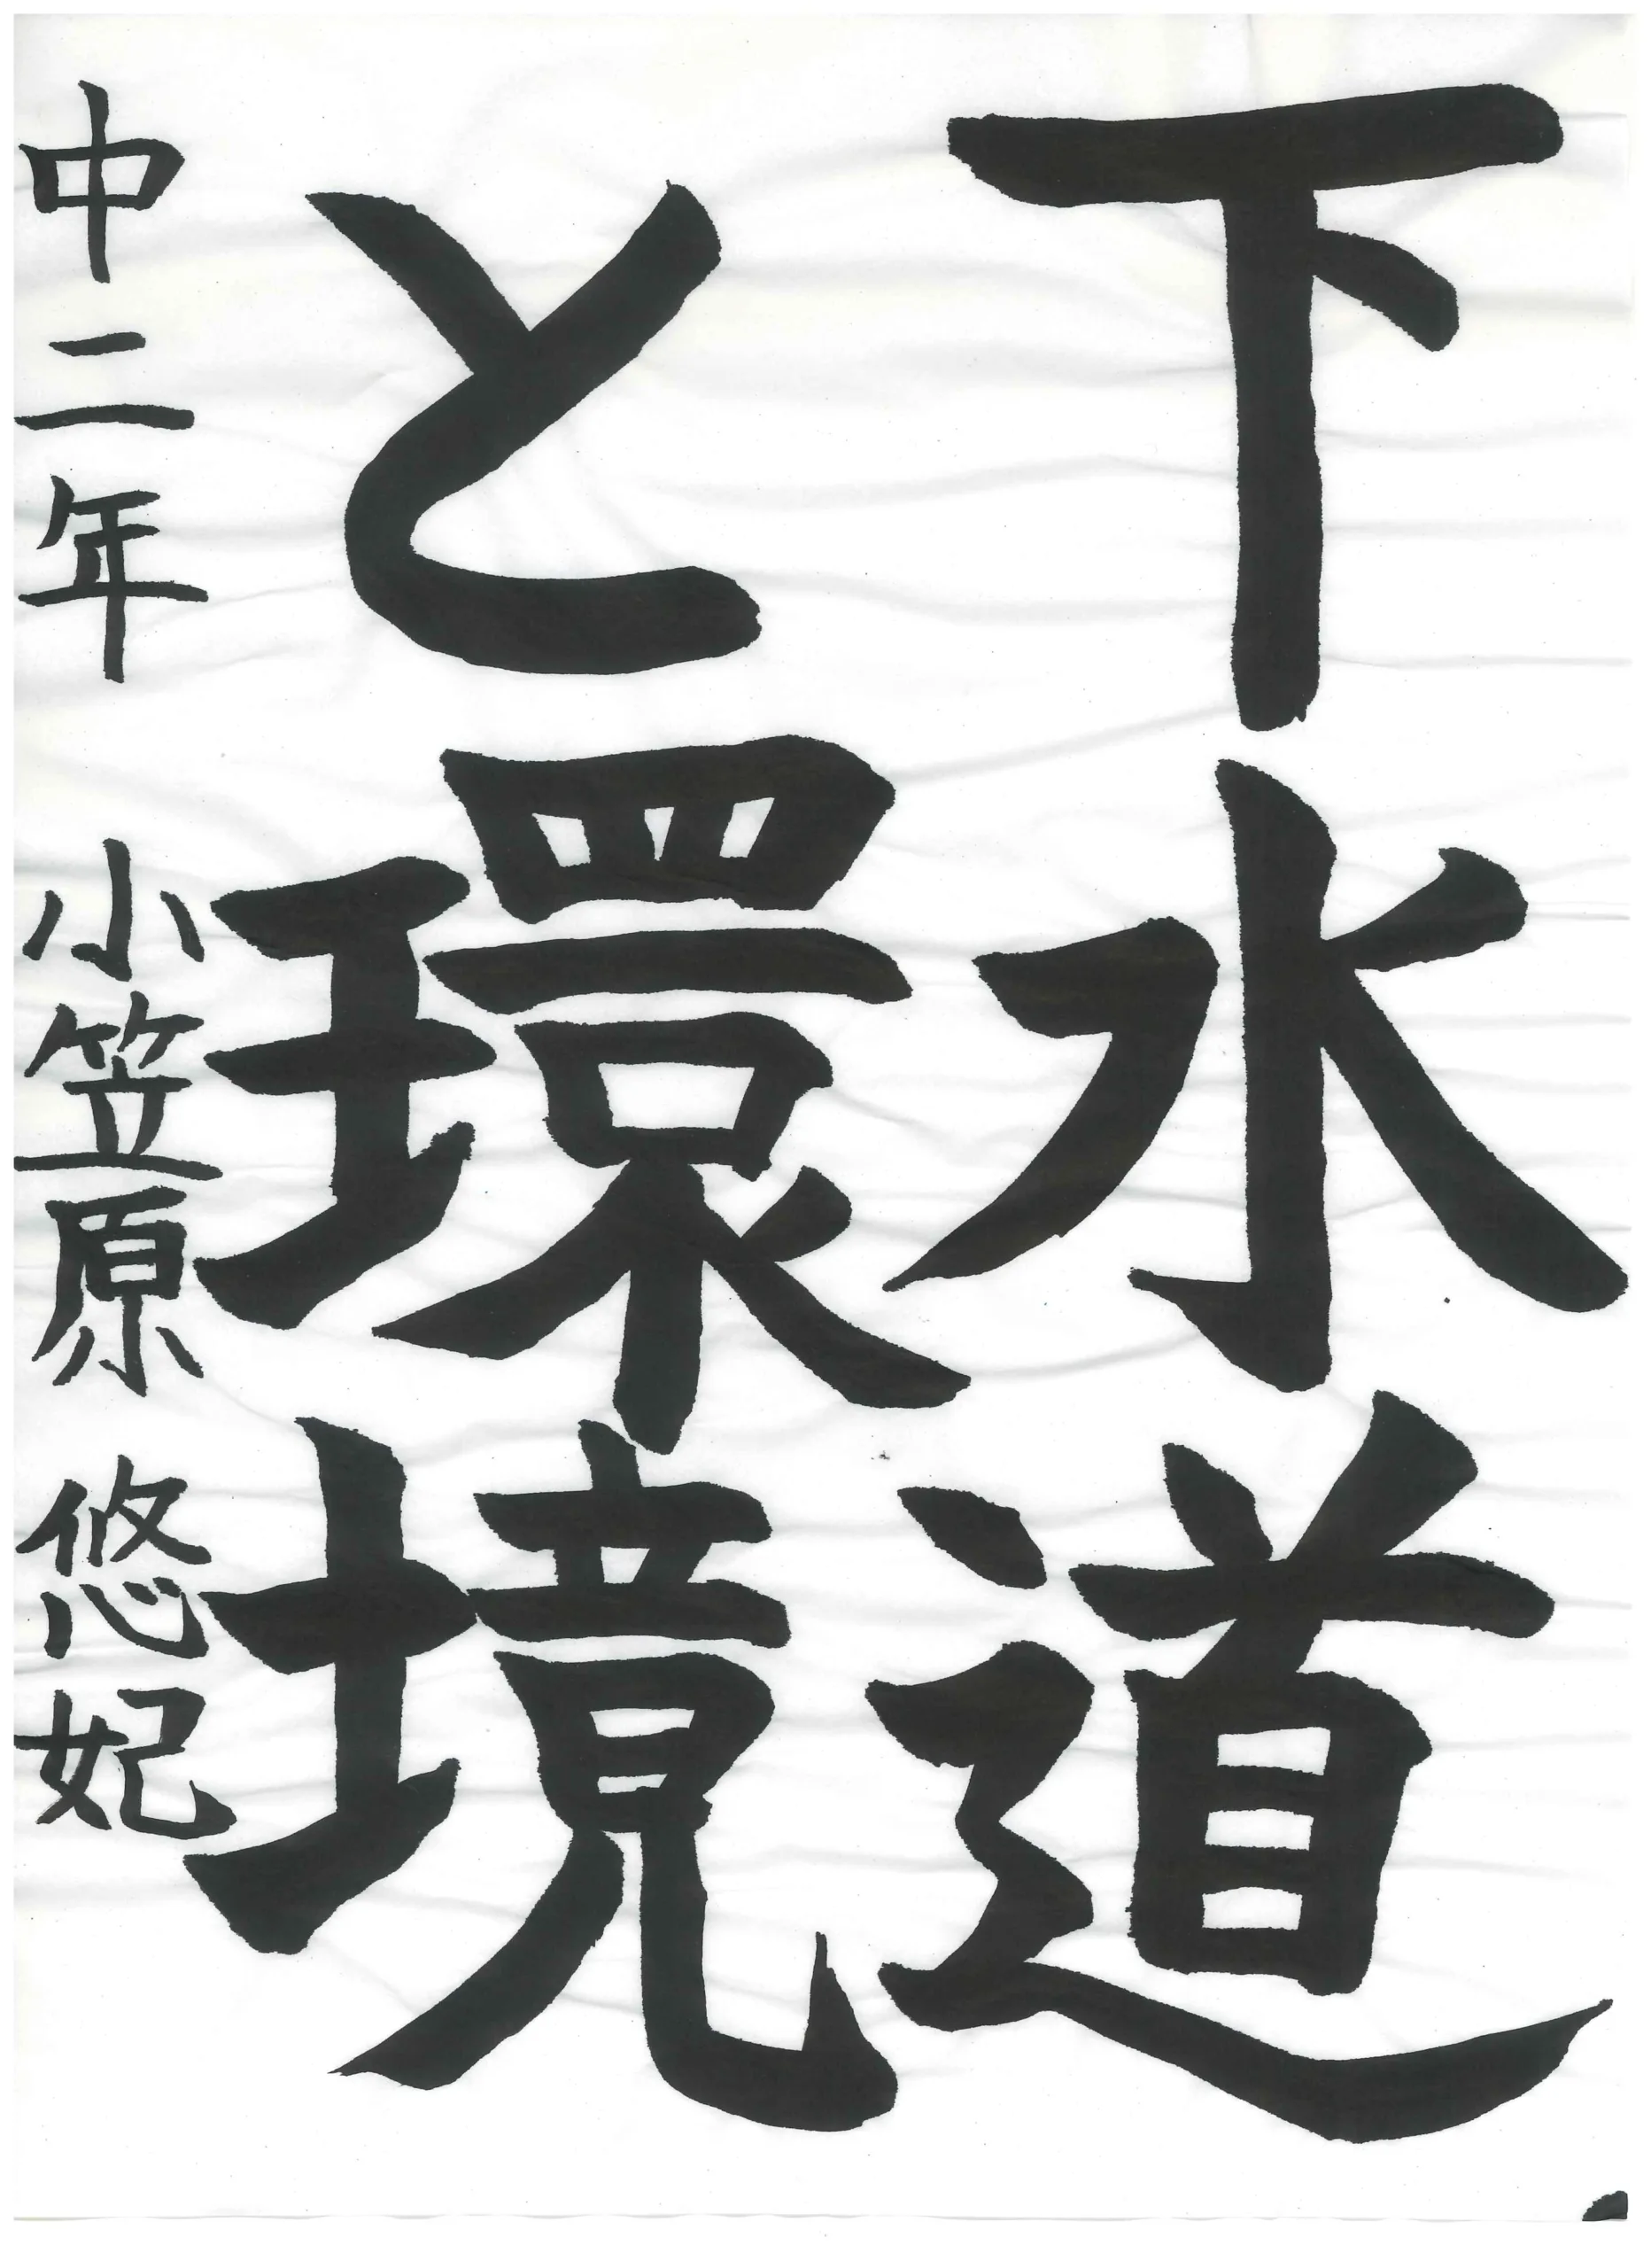 下水道
と環境
中二年 小笠原 悠妃